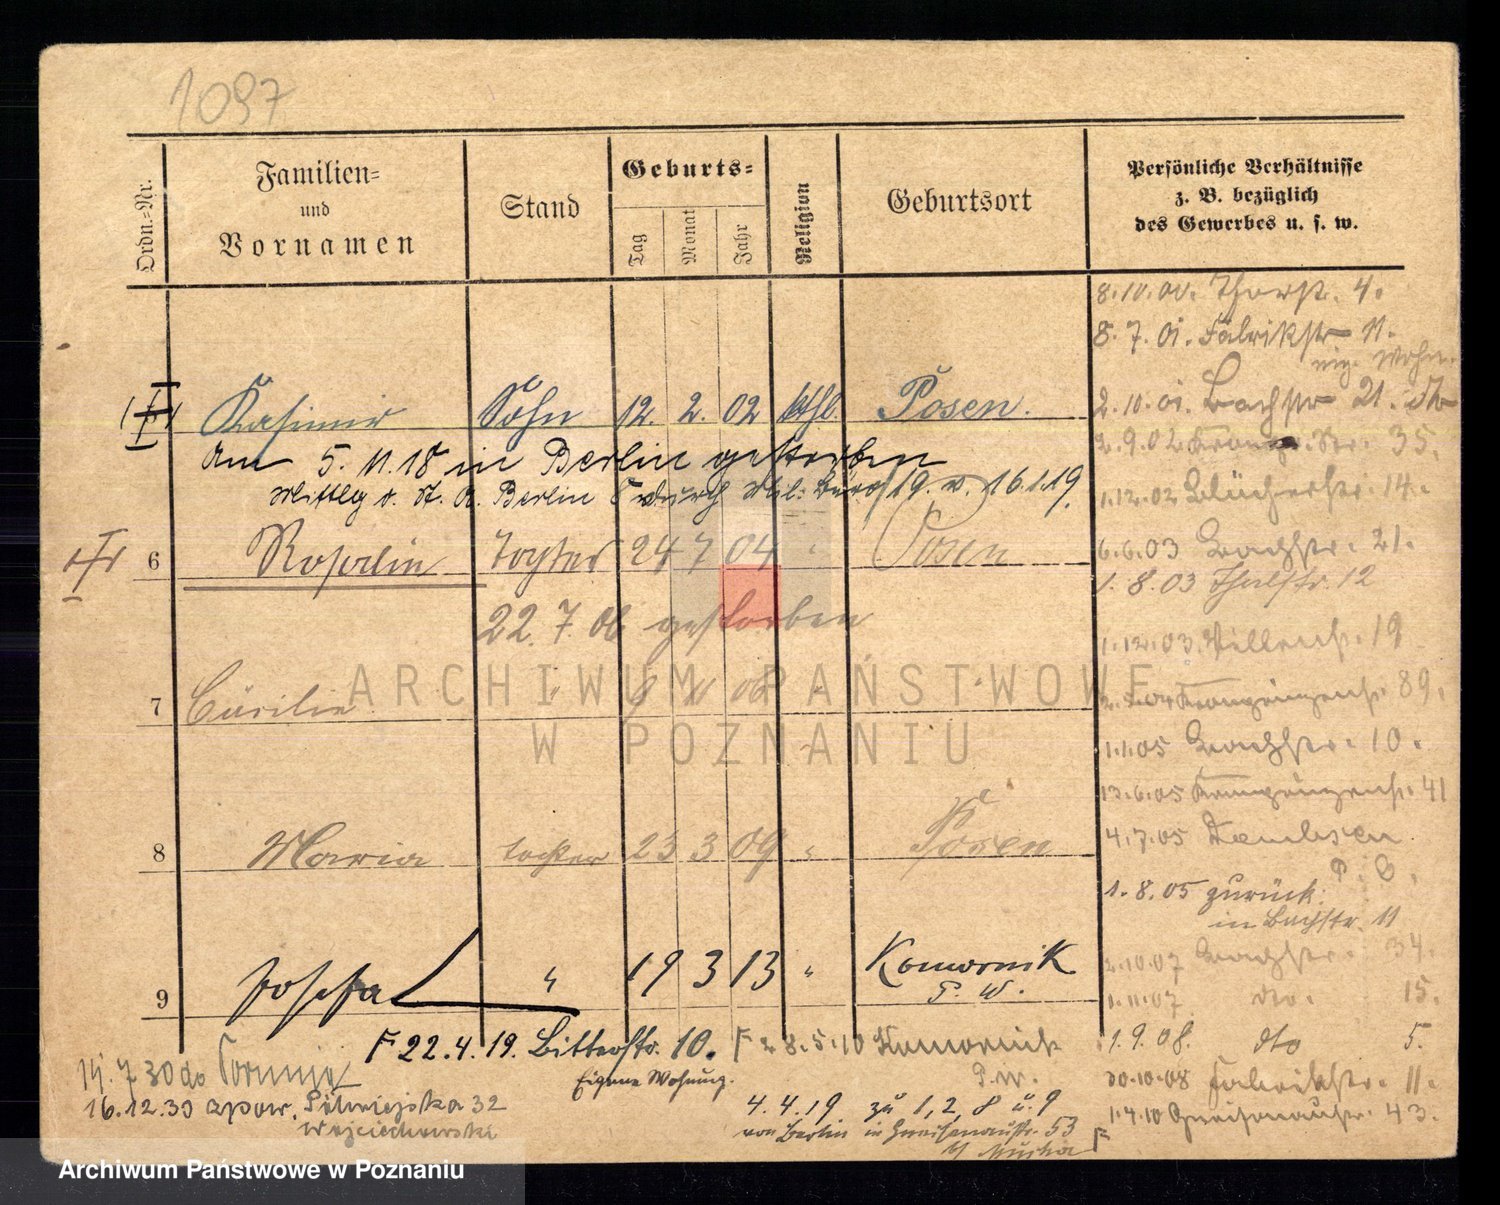 1097
Ordn.=Nr.
Familien=
und
Vornamen
Stand
Geburts=
Tag
Monat
Jahr
Religion
Geburtsort
Persönliche Verhältnisse
z. B. bezüglich
des Gewerbes u. s. w.
Kasimir Sohn 12. 2. 02 kthl. Posen.
Am 5. 11. 18 in Berlin gestorben
Berlin durch 19. v. 16.1.19.
6 Rosalia Tochter 24 7 04 " Posen
22. 7. 06 gestorben
7 Cäcilie " 8 11 06 "
8 Maria Tochter 23 3 09 " Posen
9 Josefa " 19 3 13 " Komornik
P. W.
F 22. 4. 19. Bitterstr. 10. F 28. 5. 10 Komornik
Eigene Wohnung. P. W.
4. 4. 19 zu 1, 2, 8 u. 9
von Berlin in Gneisenaustr. 53
14. 7 30 do Torunia
16. 12. 30 zpow. 32
Wojciechowski
8. 7. 01. Fabrikstr 11.
eig. Wohn.
2. 10. 01. Bachstr 21.
2. 9. 02 35.
1. 12. 02 Blücherstr. 14.
6. 6. 03 Bachstr. 21.
1. 8. 03 Thalstr. 12
1. 12. 03. 19
Kronprinzenst. 89.
1. 1. 05 Bachstr. 10.
13. 6. 05 Kronprinzenst. 41
4. 7. 05 Dembsen
P. O.
1. 8. 05 zurück
in Bachstr. 11
2. 10. 07 Bachstr. 34.
1. 11. 07 dto. 15.
1. 9. 08. dto 5.
30. 10. 08 Fabrikstr. 11.
1. 4. 10 Gneisenaustr. 43.
ARCHIWUM PAŃSTWOWE
W POZNANIU
Archiwum Państwowe w Poznaniu